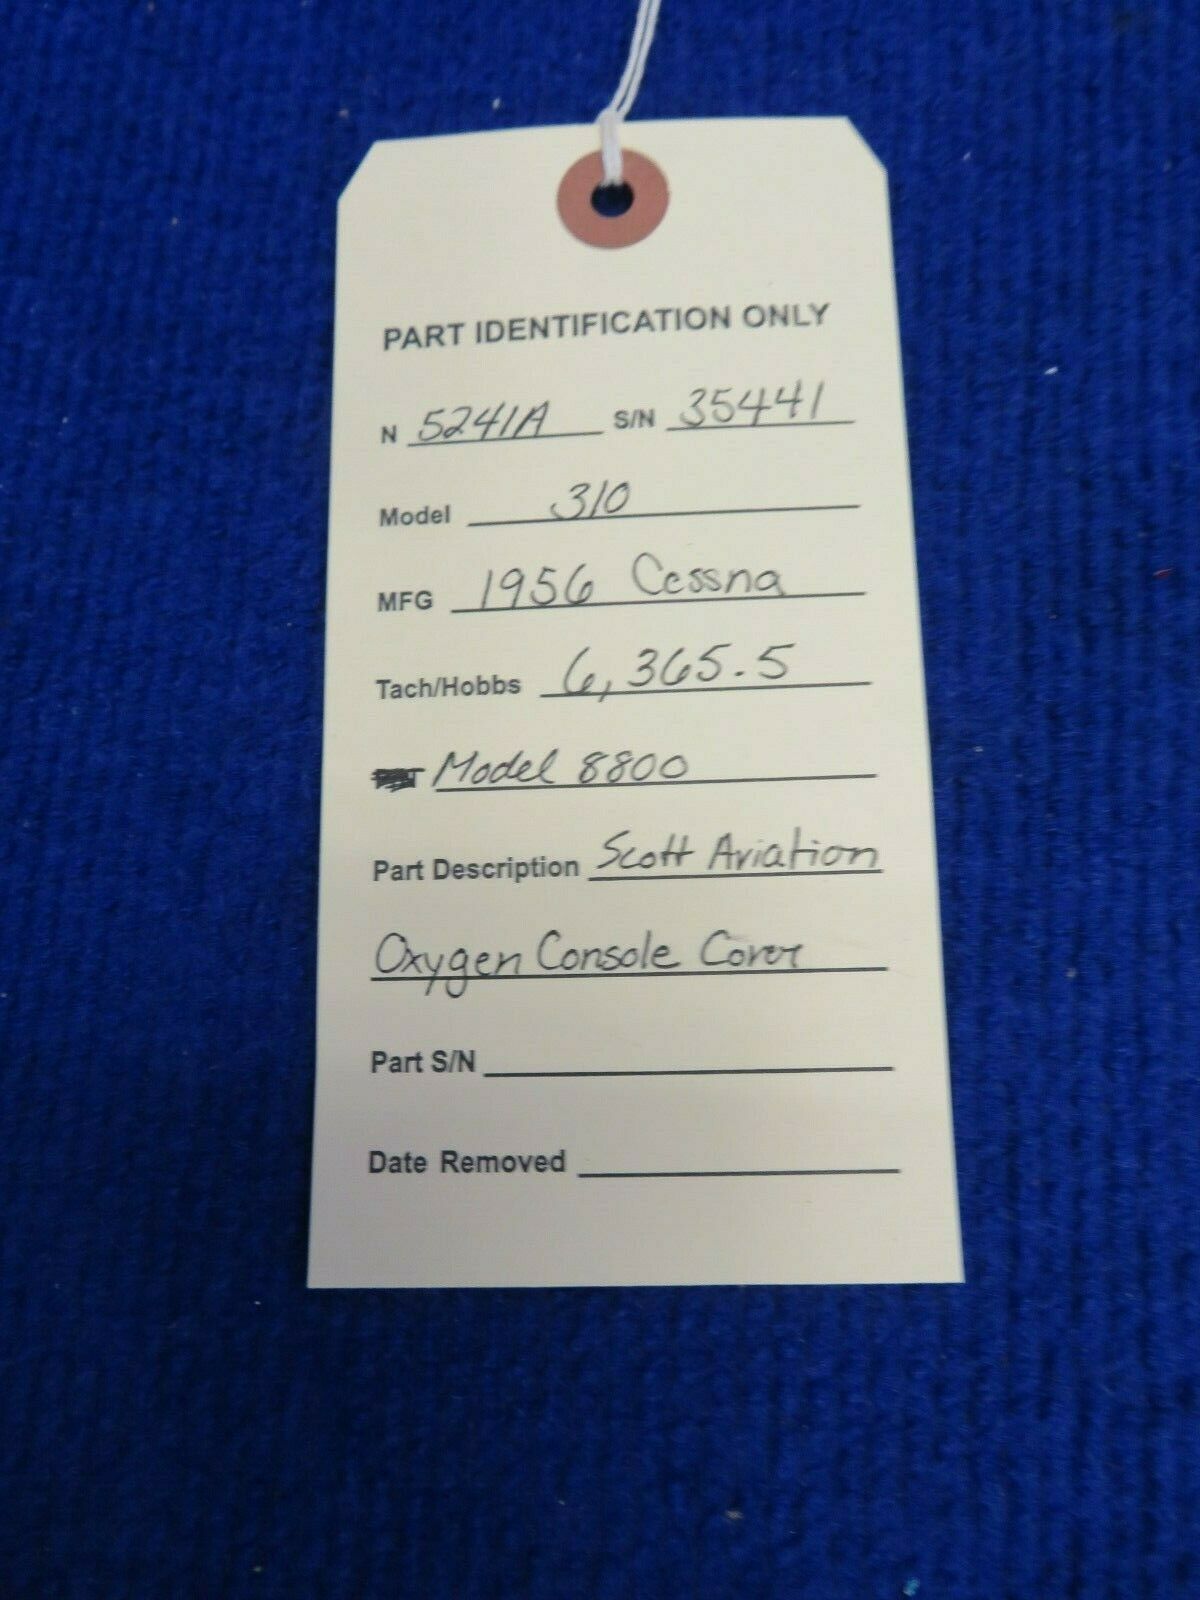 PART IDENTIFICATION ONLY
N 5241A S/N 35441
Model 310
MFG 1956 Cessna
Tach/Hobbs 6,365.5
Model 8800
Part Description Scott Aviation
Oxygen Console Cover
Part S/N
Date Removed